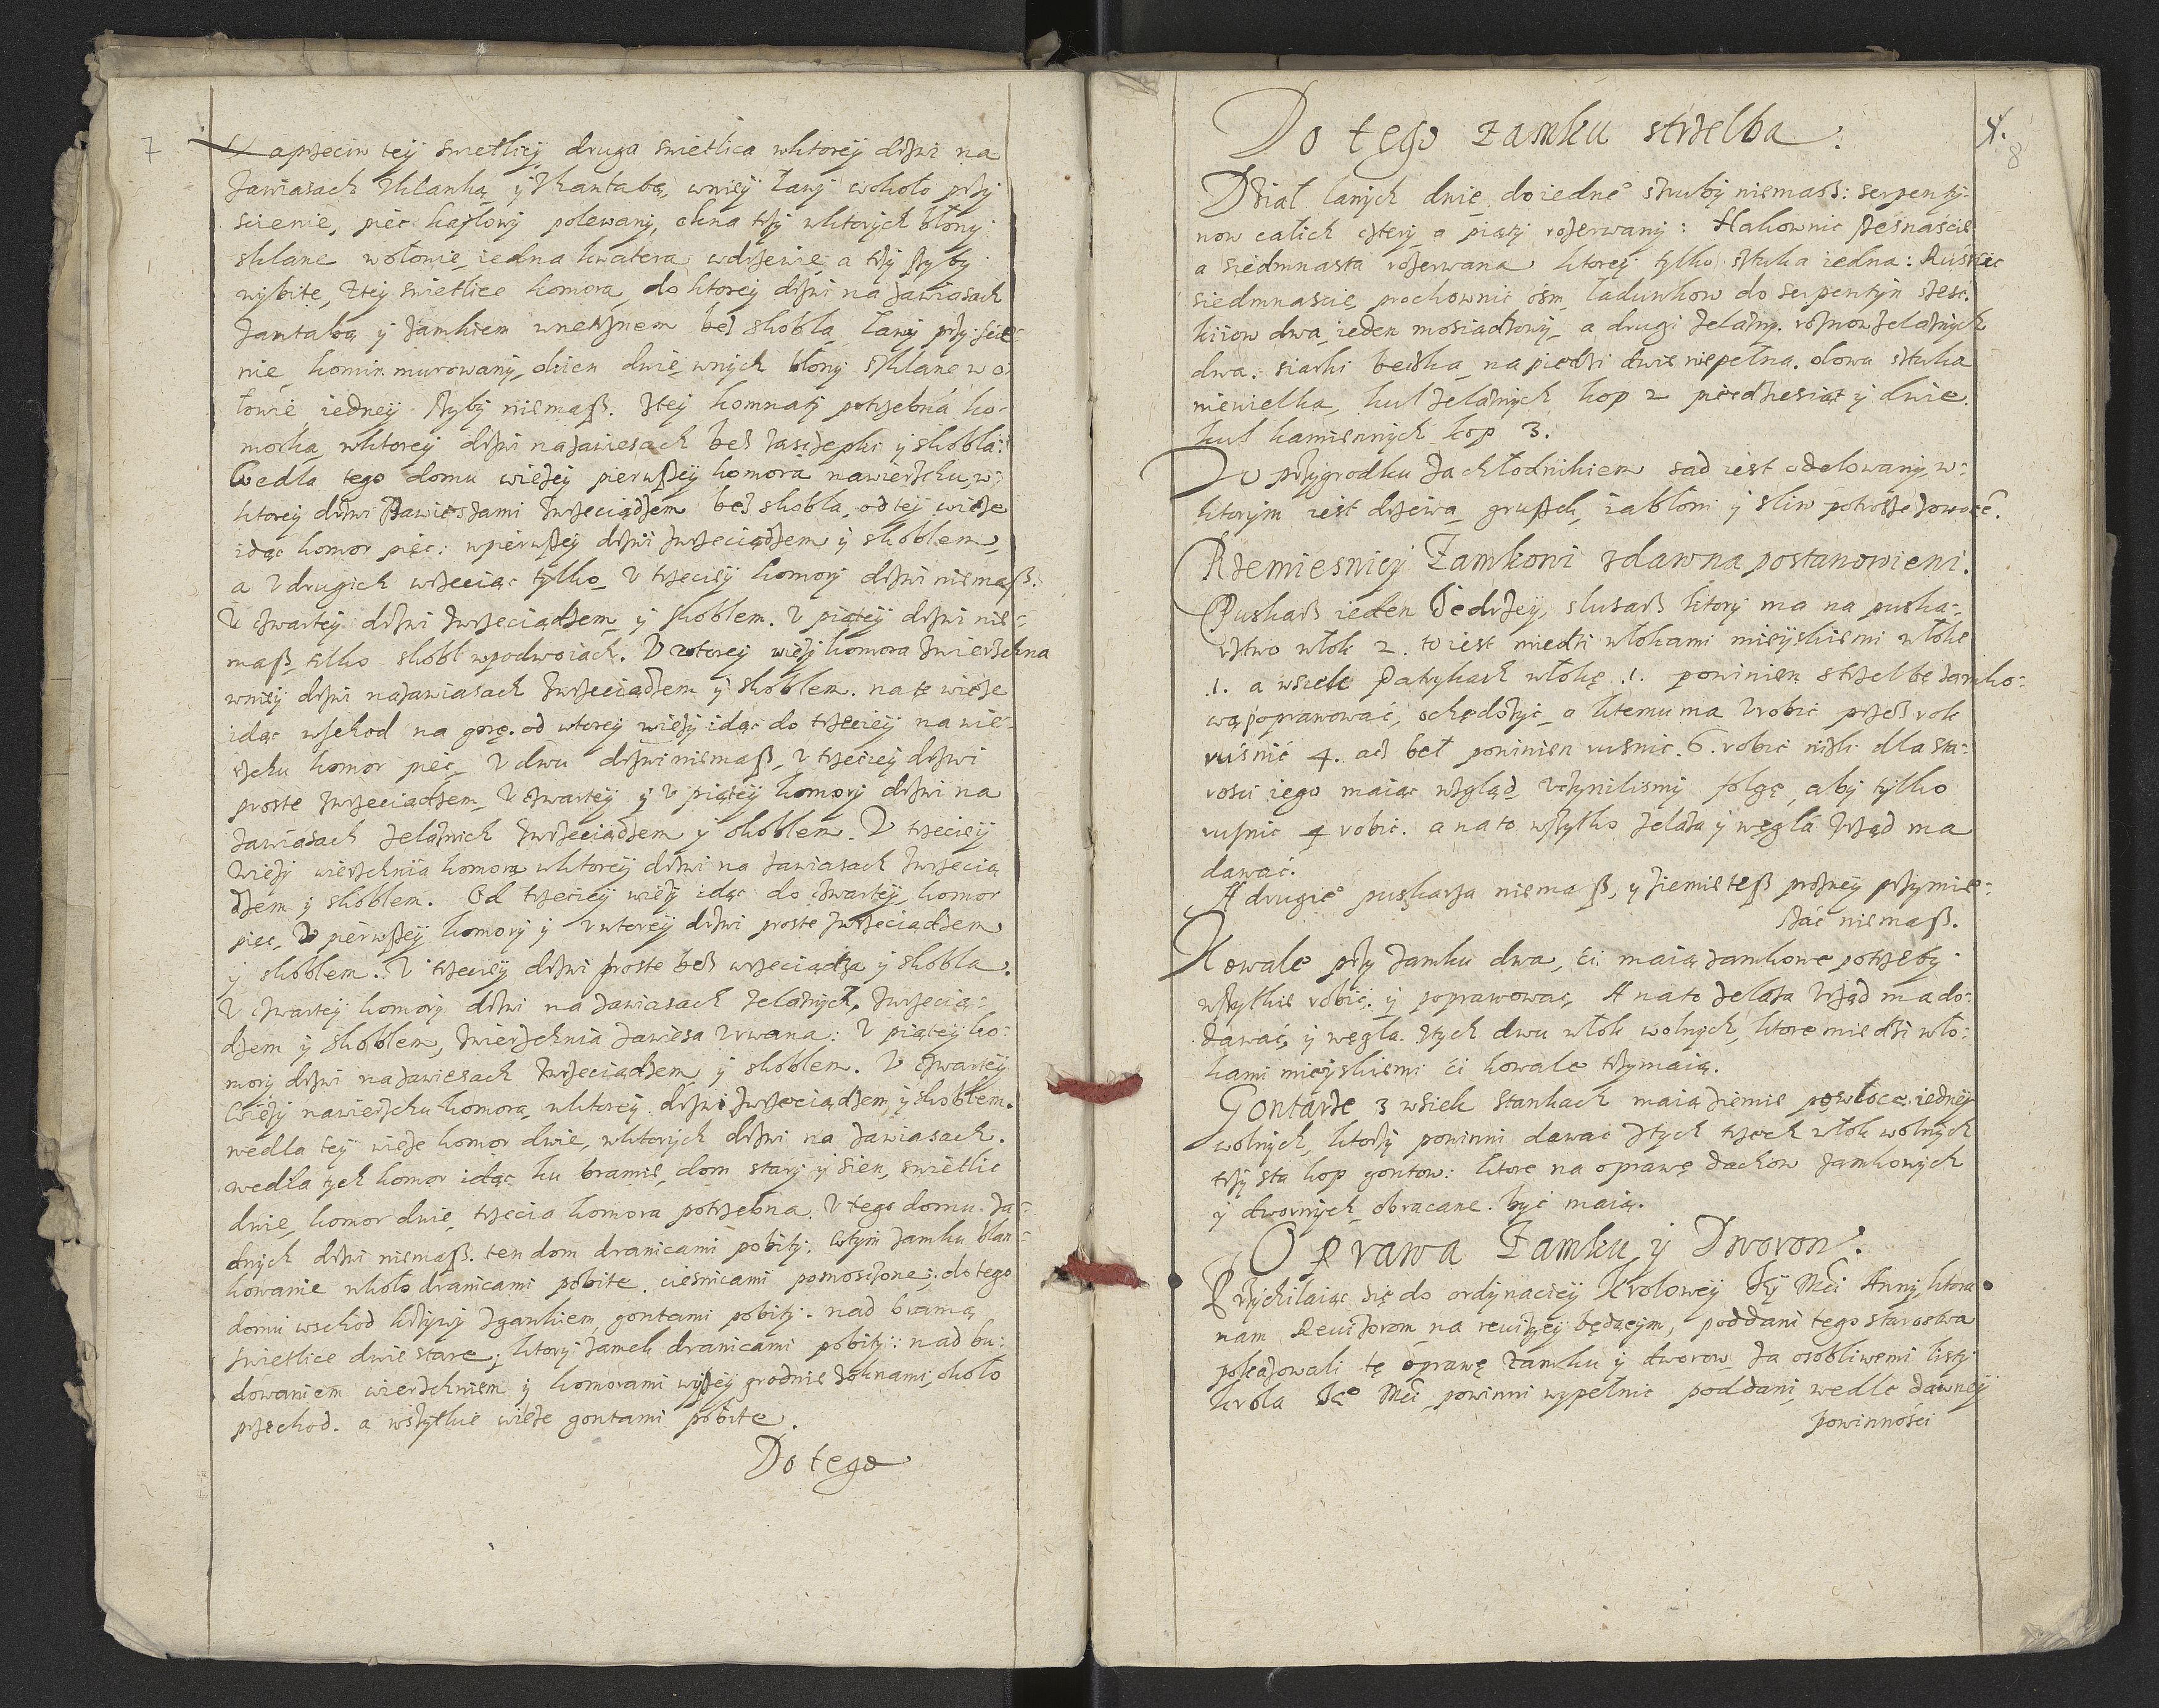 7
Naprzeciw teÿ swietlicÿ druga swietlica wktoreÿ drzwi na
zawiasach zklamką ÿ zkantabą, wnieÿ ławÿ wokoło przÿ
scienie, piec kaflowÿ polewanÿ, okna trzÿ wktorÿch błonÿ
sklane wołowie iedna kwatera wdrzewie a trzÿ szÿbÿ
wÿbite, Ztej swietlice komora do ktoreÿ drzwi na zawiasach
zantabą ÿ zamkiem wnętrznem bez skobla ławÿ przÿ scie-
nie komin murowanÿ, okien dwie wnÿch błonÿ sklane wo
łowie iedneÿ szÿbÿ niemasz. Ztej komnatÿ potrzebna ko-
morka, wktoreÿ drzwi nazawiesach bez zasczepki ÿ skobla:
Wedla tego domu wieżeÿ pierwszeÿ komora nawierzchu, w:
ktoreÿ drzwi zzawieszami zwrzeciądzem bez skobla, od teÿ wieże
idąc komor pięc: wpierwszeÿ drzwi zwrzeciądzem ÿ skoblem,
a v drugich wrzeciąc tÿlko, v trzecieÿ komorÿ drzwi niemasz.
V czwarteÿ drzwi zwrzeciądzem ÿ skoblem. V piąteÿ drzwi nie-
masz, tilko skobl wpodwoiach. V wtoreÿ wieżÿ komora zwierzchna
wnieÿ drzwi nazawiasach zwrzeciądzem ÿ skoblem. na te wieże
idąc wschod na gorę. od wtoreÿ wieżÿ idąc do trzecieÿ na wie-
rzchu komor pięć, v dwu drzwi niemasz, v trzecieÿ drzwi
proste zwrzeciadzem, v czwarteÿ ÿ v piąteÿ komorÿ drzwi na
zawiasach zelaznich zwrzeciądzem ÿ skoblem. V trzecieÿ
wieżÿ wierzchnia komora wktoreÿ drzwi na zawiasach zwrzecią
dzem ÿ skoblem. Od trzecieÿ wieżÿ idąc do czwarteÿ, komor
pięc, V pierwszeÿ komorÿ ÿ v wtoreÿ drzwi proste zwrzeciądzem
ÿ skoblem. V trzecieÿ drzwi proste bez wrzeciądza ÿ skobla.
V czwarteÿ komorÿ drzwi na zawiasach zelaznÿch, zwrzecią-
dzem ÿ skoblem, zwierzchnia zawiesa vrwana: V piąteÿ ko-
morÿ drzwi nazawiesach zwrzeciądzem ÿ skoblem. V czwarteÿ
wieżÿ nawierzchu komora, wktoreÿ drzwi zwrzeciądzem ÿ skoblem.
wedla teÿ wieże komor dwie, wktorÿch drzwi na zawiasach.
wedla tÿch komor idąc ku bramie, dom starÿ ÿ sien, swietlic
dwie, komor dwie, trzecia komora potrzebna. V tego domu. za-
dnÿch drzwi niemasz. ten dom dranicami pobitÿ. wtÿm zamku blan-
kowanie wkoło dranicami pobite cieśnicami pomosczone; do tego
domu wschod krzÿwÿ zgankiem, gontami pobitÿ. nad bramą
swietlice dwie stare; ktorÿ zamek dranicami pobitÿ: nad bu-
dowaniem wierzchniem ÿ komorami wÿszeÿ grodnie zoknami, około
przechod. a wszÿtkie wieże gontami pobite.
Do tego
8
Do tego zamku strzelba.
Dział lanÿch dwie, do iednego sruby niemasz: serpentÿ-
now całich czterÿ a piątÿ rozerwanÿ: Hakownic szesnascie
a siedmnasta rozerwana ktoreÿ tylko sztuka iedna: Rusnic
siedmnascie, prochownic osm, ładunkow do serpentÿn szesc.
kiiow dwa, ieden mosiadzowÿ, a drugi zelaznÿ. rożnow zelaznÿch
dwa. siarki beczka, na piędzi dwie niepełna. ołowu sztuka
niewielka, kul zelaznÿch kop 2 pięcdziesiąt ÿ dwie.
kul kamiennÿch kop 3.
W przÿgrodku zachłodnikiem sad iest odelowanÿ, w:
ktorÿm iest drzewa, gruszek, iabłoni ÿ sliw potrosze zowocem.
Rzemiesnicÿ Zamkowi zdawna postanowieni.
Puskarz ieden Jędrzeÿ, slusarz ktorÿ ma na puska-
rstwo włok 2. to iest miedzi włokami mieÿskiemi włokę
.1. a wsiele Patrÿkach włokę .1. powinien strzelbę zamko-
wą poprawować, ochędożÿć, a ktemu ma vrobic przez rok
rusnic 4. acz beł powinien rusnic .6. robic nizli dla sta-
rosci iego maiąc wzgląd vczÿnilismÿ folgę, abÿ tÿlko
rusnic 4 robic. a na to wszÿtko zelaza ÿ węgla Vrząd ma
dawać.
A drugiego puskarza niemasz, ÿ ziemie tesz prozneÿ przÿmie-
szać niemasz.
Kowale przÿ zamku dwa, ci maią zamkowe potrzebÿ
wszÿtkie robic, ÿ poprawowac, A nato zelaza Vrząd ma do-
dawać, ÿ węgla. Ztÿch dwu włok wolnÿch, ktore miedzi wło-
kami mieÿskiemi ci kowale trzÿmaią.
Gontarze 3 wsiele Stankach maią ziemie powłoce iedneÿ
wolnÿch, ktorzÿ powinni dawac ztÿch trzech włok wolnÿch
trzÿ sta kop gontow: ktore na oprawę dachow zamkowÿch
ÿ dwornÿch obracane bÿć maią.
Oprawa Zamku ÿ Dworow.
Przÿchilaiąc się do ordÿnacieÿ Kroloweÿ Jeÿ Mci Annÿ ktora
nam Reuizorom na reuizÿeÿ będącÿm, poddani tego starostwa
pokazowali tę oprawę zamku ÿ dworow za osobliwemi listÿ
krola Jego Mci powinni wÿpełnic poddani, wedle dawneÿ
powinności